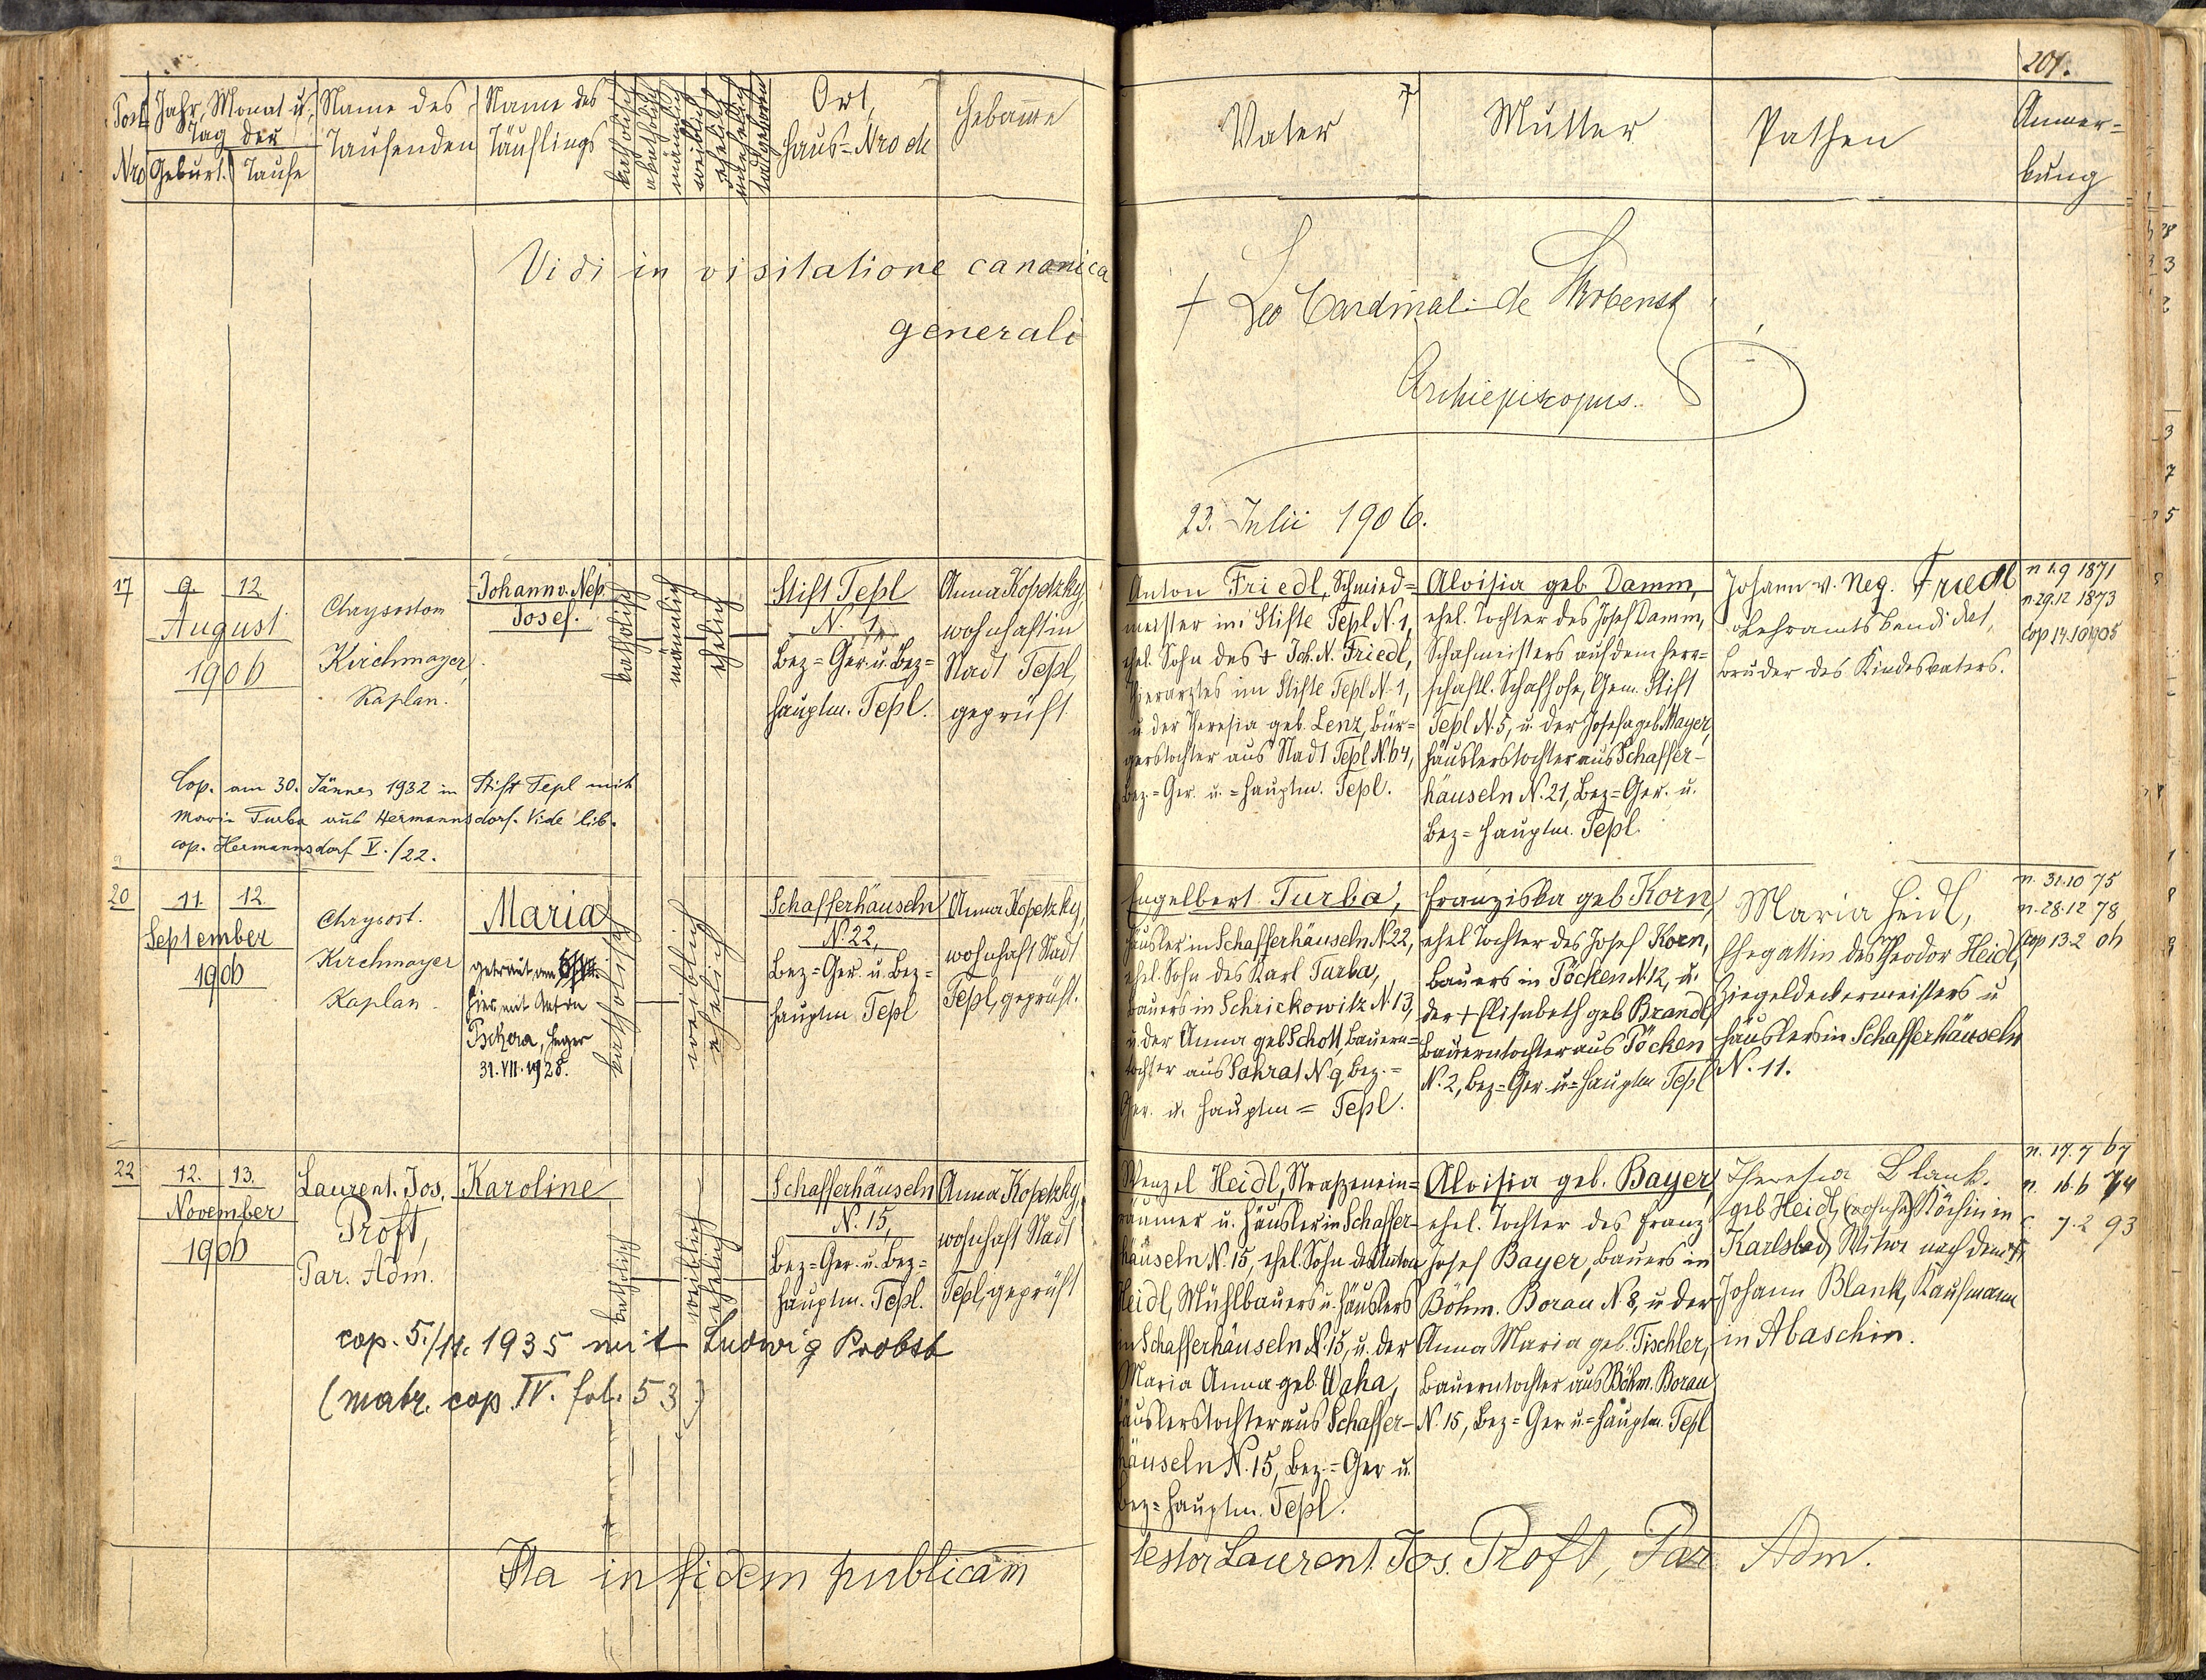 201.
Post= Nro
Jahr, Monat u. Tag der
Geburt. Taufe
Name des Taufenden
Name des Täuflings
katholisch
akatholisch
männlich
weiblich
ehelich
unehelich
todtgeboren
Ort, Haus=Nro etc
Hebamme
Vater
Mutter
Pathen
Anmer=
kung
Vidi in visitatione canonica
generali
+ Leo Cardinal. de Skrbensky
Archiepiscopus.
23. Julii 1906.
17
9. 12.
August
1906
Chrysostom
Kirchmayer,
Kaplan.
Johann v. Nep.
Josef.
katholisch
männlich
ehelich
Stift Tepl
N. 1,
Bez=Ger. u. Bez=
Hauptm. Tepl.
Anna Kopetzky,
wohnhaft in
Stadt Tepl,
geprüft
Anton Friedl, Schmied=
meister im Stifte Tepl N. 1,
ehel. Sohn des + Joh. N. Friedl,
Tierarztes im Stifte Tepl N. 1,
u. der Theresia geb. Lenz, Bür=
gerstochter aus Stadt Tepl N. 64,
Bez.=Ger. u. =Hauptm. Tepl.
Aloisia geb. Damm,
ehel. Tochter des Josef Damm,
Schafmeisters auf dem herr=
schaftl. Schafhofe, Gem. Stift
Tepl N. 5, u. der Josefa geb. Mayer,
Häuslerstochter aus Schaffer-
häuseln N. 21, Bez=Ger. u.
Bez=Hauptm. Tepl.
Johann v. Nep. Friedl
Lehramtskandidat,
Bruder des Kindesvaters.
n 1.9 1871
n. 29.12 1873
Cop 17.10 1905
Cop. am 30. Jänner 1932 in Stift Tepl mit
Maria Turba aus Hermannsdorf. Vide lib.
cop. Hermannsdorf V./22.
20
11. 12.
September
1906
Chrysost.
Kirchmayer
Kaplan.
Maria
getraut am
hier mit Anton
Pschera, Heger
31.VII.1928.
katholisch
weiblich
ehelich
Schafferhäuseln
N. 22,
Bez=Ger. u. Bez=
Hauptm Tepl
Anna Kopetzky,
wohnhaft Stadt
Tepl, geprüft.
Engelbert Turba,
Häusler in Schafferhäuseln N. 22,
ehel. Sohn des Karl Turba,
Bauers in Schrickowitz N. 13,
u. der Anna geb Schott, Bauern=
tochter aus Sahrat N 9 Bez.=
Ger. u. Hauptm = Tepl.
Franziska geb Korn,
ehel Tochter des Josef Korn,
Bauers in Pöcken N 12, u.
der + Elisabeth geb Brandl,
Bauerntochter aus Pöcken
N. 2, Bez=Ger u=Hauptm Tepl
Maria Heidl,
Ehegattin des Theodor Heidl,
Ziegeldeckermeisters u
Häuslers in Schafferhäuseln
N. 11.
n. 31.10 75
n. 28.12 78
Cop 13.2 06
22
12. 13.
November
1906
Laurent. Jos.
Proft,
Par. Adm.
Karoline
katholisch
weiblich
ehelich
Schafferhäuseln
N. 15,
Bez=Ger. u. Bez=
Hauptm. Tepl.
Anna Kopetzky,
wohnhaft Stadt
Tepl, geprüft
Wenzel Heidl, Straßenein=
räumer u. Häusler in Schaffer-
häuseln N. 15, ehel. Sohn des Anton
Heidl, Mühlbauers u. Häuslers
in Schafferhäuseln N. 15, u. der
Maria Anna geb. Waha,
Häuslerstochter aus Schaffer-
häuseln N. 15, Bez.=Ger u.
Bez=Hauptm. Tepl.
Aloisia geb. Bayer,
ehel. Tochter des Franz
Josef Bayer, Bauers in
Böhm. Borau N. 8, u der
Anna Maria geb. Tischler,
Bauerntochter aus Böhm. Borau
N. 15, Bez=Ger u.=Hauptm. Tepl
Theresia Blank.
geb Heidl, Köchin in
Karlsbad, Witwe nach dem +
Johann Blank, Kaufmann
in Abaschin.
n. 17.7 67
n. 16.6 74
c. 7.2 93
cop. 5./11. 1935 mit Ludwig Probst
(matr. cop. IV. fol. 53)
Ita in fidem publicam
testor Laurent. Jos. Proft, Par. Adm.